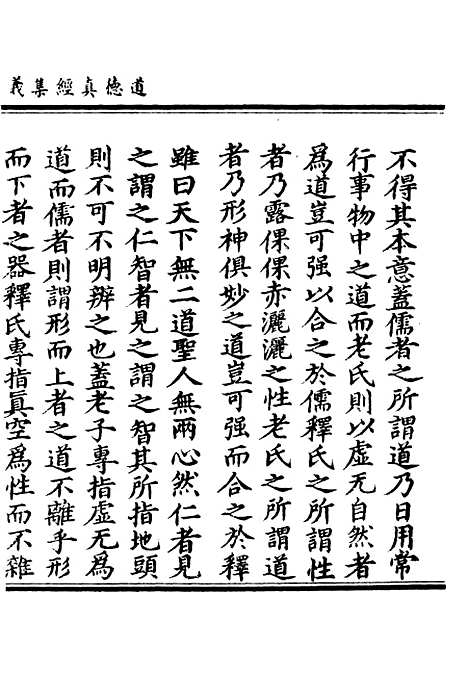 道德真經集義
不得其本意蓋儒者之所謂道乃日用常
行事物中之道而老氏則以虛无自然者
爲道豈可强以合之於儒釋氏之所謂性
者乃露倮倮赤灑灑之性老氏之所謂道
者乃形神俱妙之道豈可强而合之於釋
雖曰天下無二道聖人無兩心然仁者見
之謂之仁智者見之謂之智其所指地頭
則不可不明辨之也蓋老子專指虛无爲
道而儒者則謂形而上者之道不離乎形
而下者之器釋氏專指眞空爲性而不雜